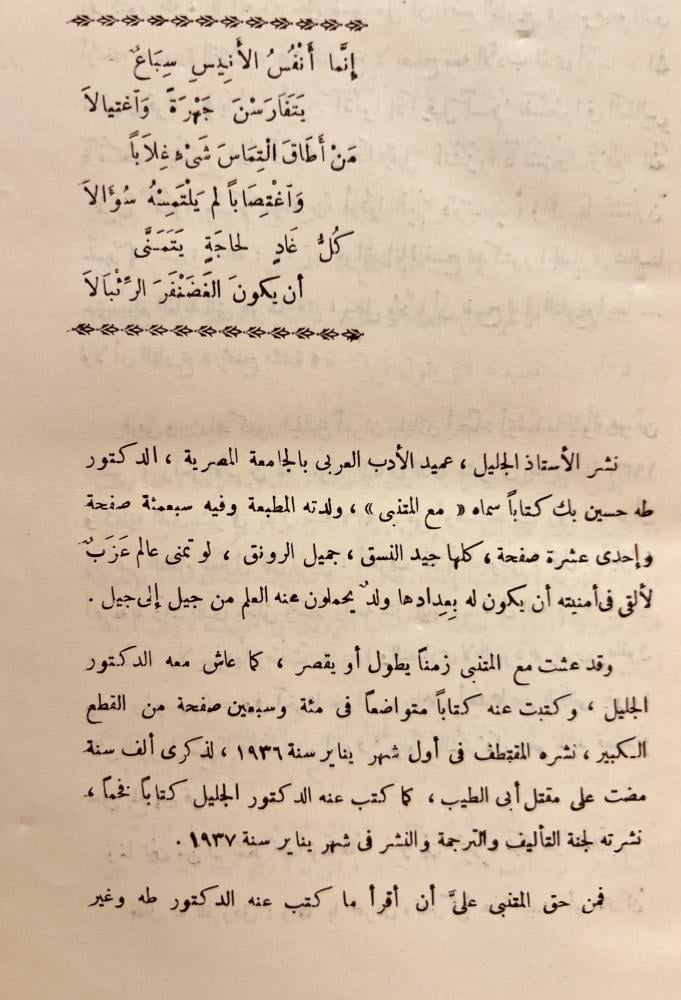 إِنَّمَا أَنْفُسُ الأَنِيسِ سِبَاعٌ
يَتَفَارَسْنَ جَهْرَةً وَٱغتيالاَ
مَنْ أَطَاقَ الْتِمَاسَ شَىْءٍ غِلَاباً
وَٱغْتِصَاباً لم يَلْتَمِسْهُ سُؤَالاَ
كُلُّ غَادٍ لحاجَةٍ يَتَمَنَّى
أن يكونَ الغَضَنْفَرَ الرِّئْبَالاَ
نشر الأستاذ الجليل ، عميد الأدب العربى بالجامعة المصرية ، الدكتور
طه حسين بك كتاباً سماه « مع المتنبى » ، ولدته المطبعة وفيه سبعمئة صفحة
وإحدى عشرة صفحة ، كلها جيد النسق ، جميل الرونق ، لو تمنى عالم عَزَبٌ
لألقى فى أمنيته أن يكون له بِعِدادها ولدٌ يحملون عنه العلم من جيل إلى جيل .
وقد عشت مع المتنبى زمناً يطول أو يقصر ، كما عاش معه الدكتور
الجليل ، وكتبت عنه كتاباً متواضعاً فى مئة وسبعين صفحة من القطع
الكبير ، نشره المقتطف فى أول شهر يناير سنة ١٩٣٦ ، لذكرى ألف سنة
مضت على مقتل أبى الطيب ، كما كتب عنه الدكتور الجليل كتاباً فخماً ،
نشرته لجنة التأليف والترجمة والنشر فى شهر يناير سنة ١٩٣٧ .
فمن حق المتنبى علىَّ أن أقرأ ما كتب عنه الدكتور طه وغير